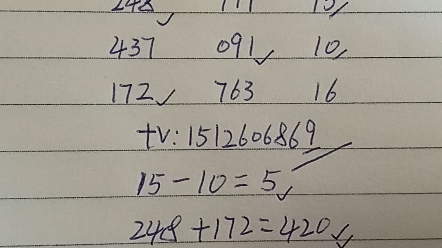 248 15
437 091 10
172 763 16
tv: 1512606869
15-10=5
248+172=420